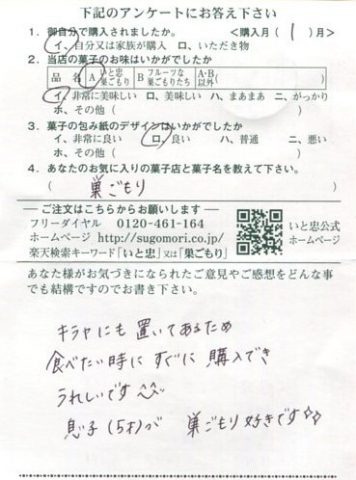 下記のアンケートにお答え下さい
1. 御自分で購入されましたか。 <購入月( 1 )月>
イ、自分又は家族が購入 ロ、いただき物
2. 当店の菓子のお味はいかがでしたか
品 名 A いと忠巣ごもり B フルーツな巣ごもりたち A・B以外
イ、非常に美味しい ロ、美味しい ハ、まあまあ ニ、がっかり
ホ、その他( )
3. 菓子の包み紙のデザインはいかがでしたか
イ、非常に良い ロ、良い ハ、普通 ニ、悪い
ホ、その他( )
4. あなたのお気に入りの菓子店と菓子名を教えて下さい。
( 巣ごもり )
― ご注文はこちらからお願いします ―
フリーダイヤル 0120-461-164
ホームページ http://sugomori.co.jp/
楽天検索キーワード「いと忠」又は「巣ごもり」
いと忠公式
ホームページ
あなた様がお気づきになられたご意見やご感想をどんな事
でも結構ですのでお書き下さい。
キラヤにも 置いてあるため
食べたい時に すぐに 購入でき
うれしいです ^^
息子(5才)が 巣ごもり好きです